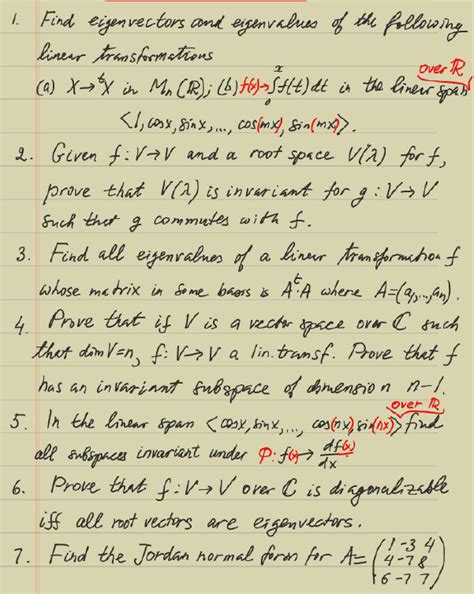 1. Find eigenvectors and eigenvalues of the following
linear transformations
over ℝ
(a) X→ᵗX in Mₙ(ℝ); (b) f(x)→∫₀ˣf(t)dt in the linear span
<1, cosx, sinx, ..., cos(mx), sin(mx)>.
2. Given f: V→V and a root space V(λ) for f,
prove that V(λ) is invariant for g: V→V
such that g commutes with f.
3. Find all eigenvalues of a linear transformation f
whose matrix in some basis is Aᵗ·A where A=(a₁,...,aₙ).
4. Prove that if V is a vector space over ℂ such
that dimV=n, f: V→V a lin. transf. Prove that f
has an invariant subspace of dimension n-1.
over ℝ
5. In the linear span <cosx, sinx, ..., cos(nx), sin(nx)> find
all subspaces invariant under φ: f(x)→ df(x)/dx
6. Prove that f: V→V over ℂ is diagonalizable
iff all root vectors are eigenvectors.
7. Find the Jordan normal form for A= (1 -3 4
4 -7 8
6 -7 7)